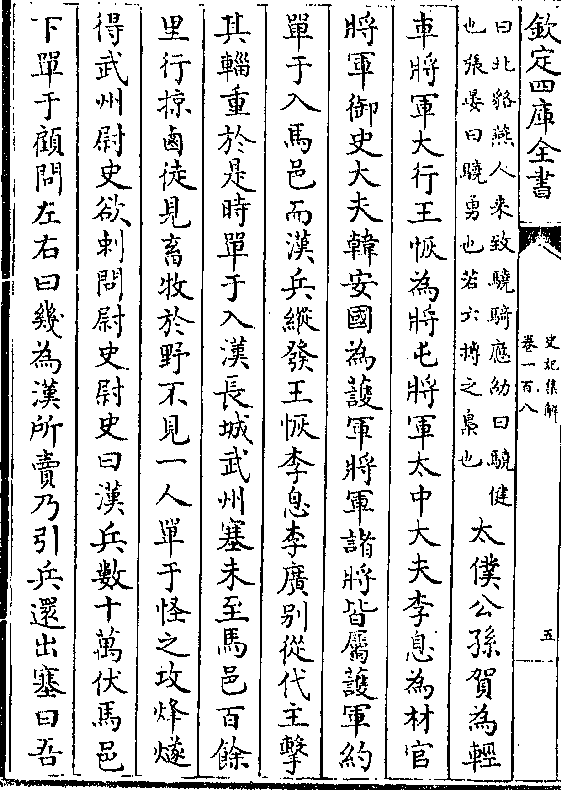 欽定四庫全書
史記集解
卷一百八
五
曰北貉燕人來致驍騎應劭曰驍健
也張晏曰驍勇也若六搏之梟也
太僕公孫賀為輕
車將軍大行王恢為將屯將軍太中大夫李息為材官
將軍御史大夫韓安國為護軍將軍諸將皆屬護軍約
單于入馬邑而漢兵縱發王恢李息李廣别從代主擊
其輜重於是時單于入漢長城武州塞未至馬邑百餘
里行掠鹵徒見畜牧於野不見一人單于怪之攻烽燧
得武州尉史欲刺問尉史尉史曰漢兵數十萬伏馬邑
下單于顧問左右曰幾為漢所賣乃引兵還出塞曰吾